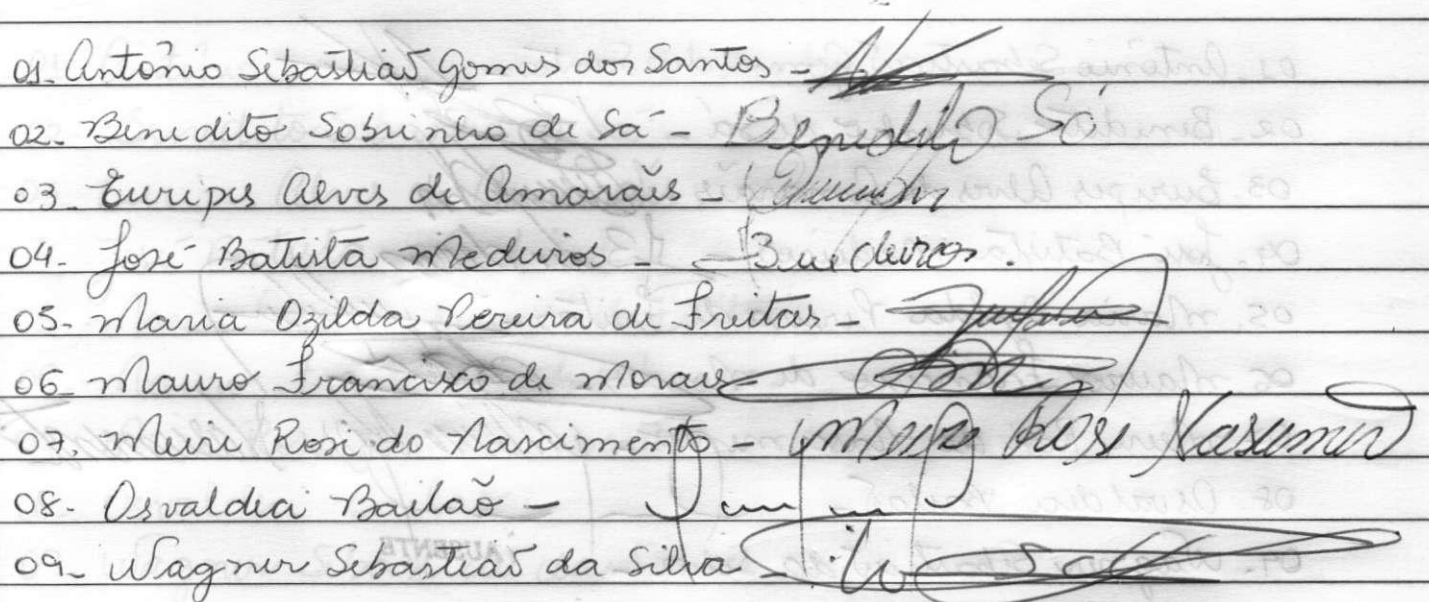 01. Antônio Sebastião Gomes dos Santos -
02. Benedito Sobrinho de Sá - Benedito Sá
03. Euripes Alves de Amarães -
04. José Batista Medeiros - Medeiros.
05. Maria Ozilda Pereira de Freitas -
06. Mauro Francisco de Morais -
07. Meire Rose do Nascimento - Meire Rose Nascimento
08. Osvaldea Bailão -
09. Wagner Sebastião da Silva -
AUSENTE